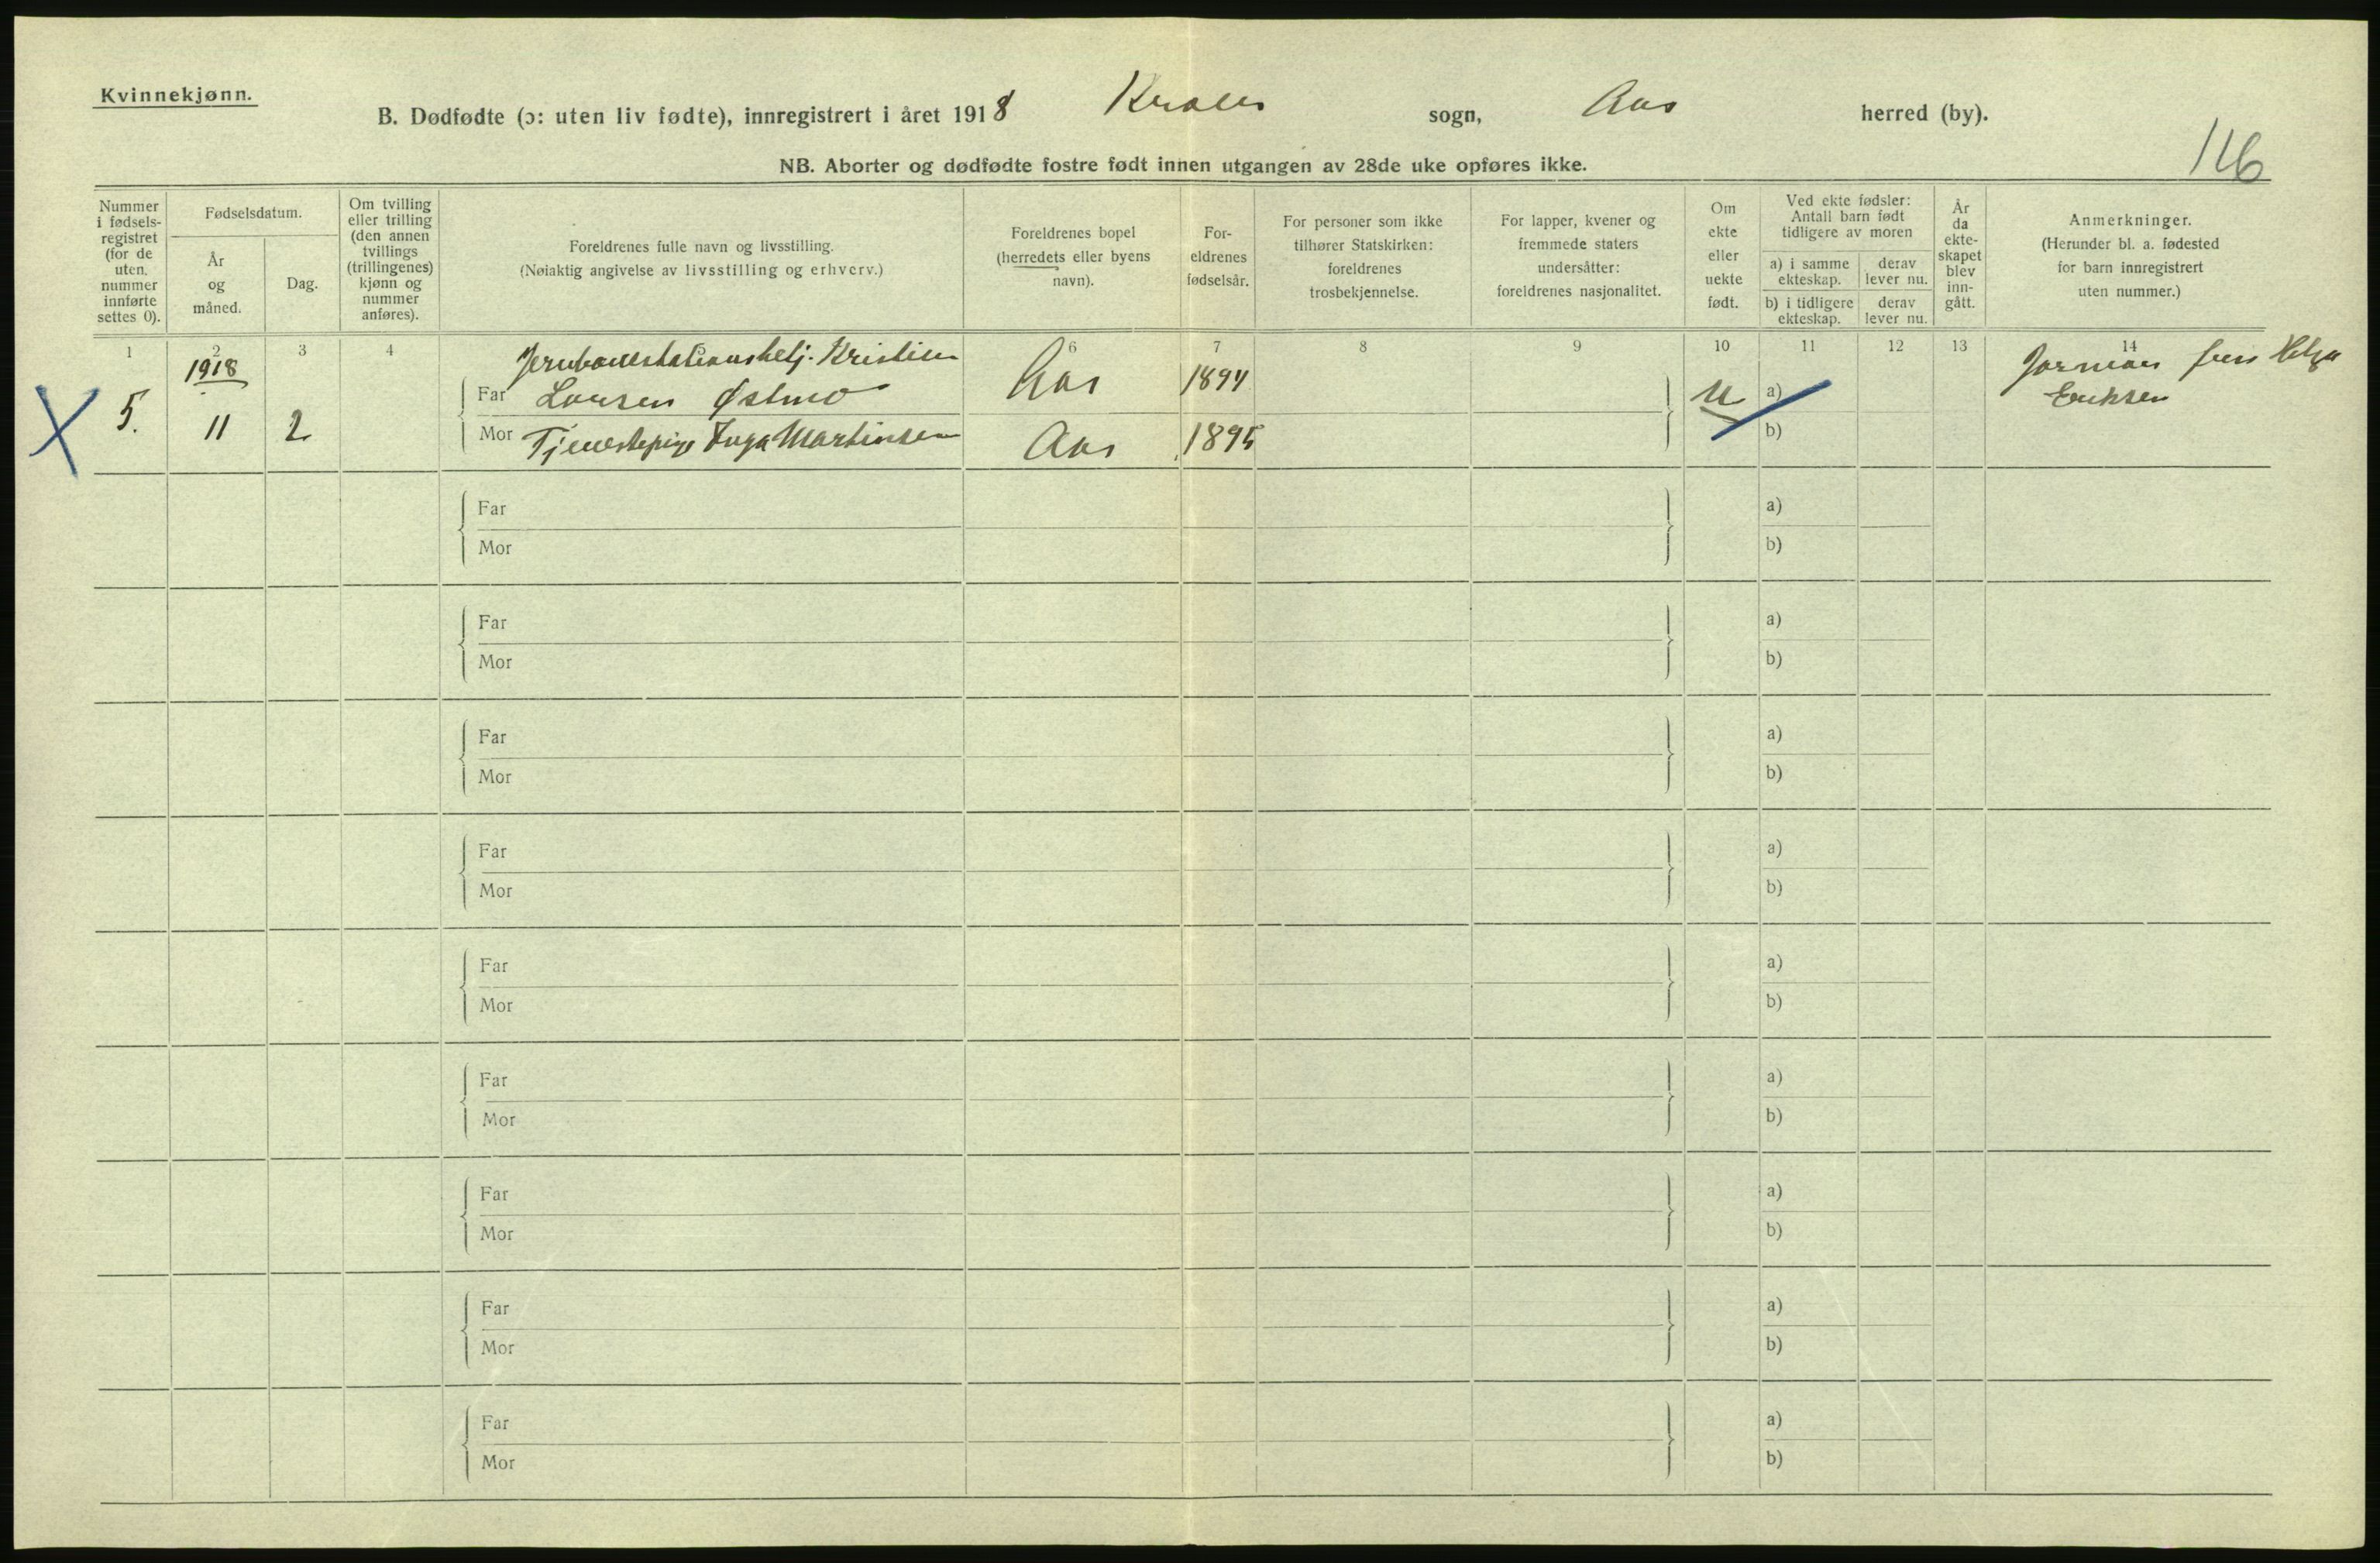 Kvinnekjønn.
B. Dødfødte (ɔ: uten liv fødte), innregistrert i året 1918 Kroer sogn, Aas herred (by).
NB. Aborter og dødfødte fostre født innen utgangen av 28de uke opføres ikke.
116
Nummer i fødsels-registret (for de uten nummer innførte settes 0).
Fødselsdatum.
År og måned.
Dag.
Om tvilling eller trilling (den annen tvillings (trillingenes) kjønn og nummer anføres).
Foreldrenes fulle navn og livsstilling.
(Nøiaktig angivelse av livsstilling og erhverv.)
Foreldrenes bopel (herredets eller byens navn).
For-eldrenes fødselsår.
For personer som ikke tilhører Statskirken: foreldrenes trosbekjennelse.
For lapper, kvener og fremmede staters undersåtter: foreldrenes nasjonalitet.
Om ekte eller uekte født.
Ved ekte fødsler: Antall barn født tidligere av moren
a) i samme ekteskap.
derav lever nu.
b) i tidligere ekteskap.
derav lever nu.
År da ekte-skapet blev inn-gått.
Anmerkninger.
(Herunder bl. a. fødested for barn innregistrert uten nummer.)
1 2 3 4 6 7 8 9 10 11 12 13 14
1918 Jernbanestationsbetj. Kristian Jormor frue Helga
5. Far Larsen Østmo Aas 1894 U a) Eriksen
11 2 Mor Tjenestepige Inga Martinsen Aas 1895 b)
Far a)
Mor b)
Far a)
Mor b)
Far a)
Mor b)
Far a)
Mor b)
Far a)
Mor b)
Far a)
Mor b)
Far a)
Mor b)
Far a)
Mor b)
Far a)
Mor b)